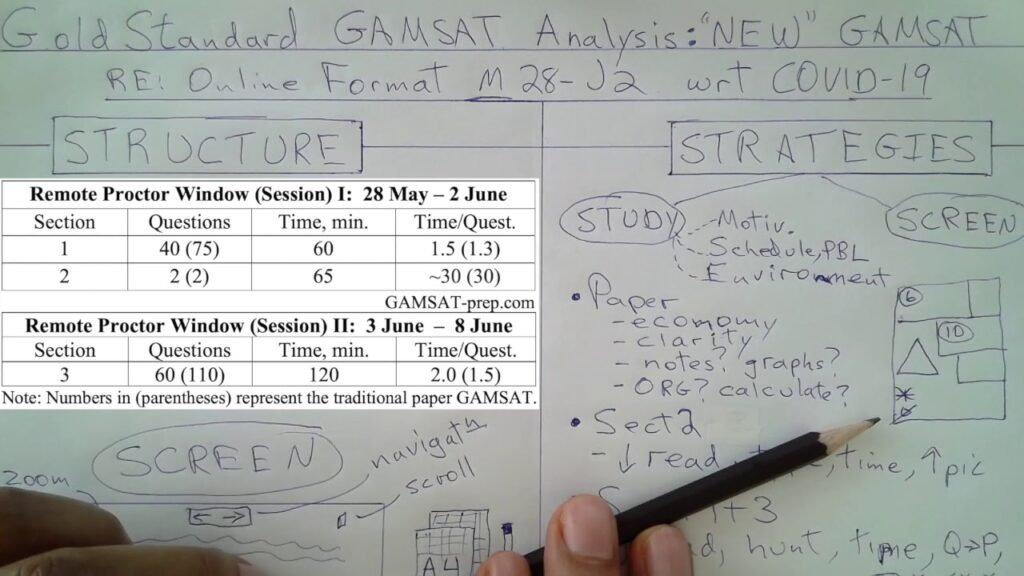 Gold Standard GAMSAT Analysis: "NEW" GAMSAT
RE: Online Format M 28-J2 wrt COVID-19
STRUCTURE
Remote Proctor Window (Session) I: 28 May – 2 June
Section Questions Time, min. Time/Quest.
1 40 (75) 60 1.5 (1.3)
2 2 (2) 65 ~30 (30)
GAMSAT-prep.com
Remote Proctor Window (Session) II: 3 June – 8 June
Section Questions Time, min. Time/Quest.
3 60 (110) 120 2.0 (1.5)
Note: Numbers in (parentheses) represent the traditional paper GAMSAT.
SCREEN
zoom
scroll
A4
STRATEGIES
STUDY
Motiv.
Schedule, PBL
Environment
SCREEN
6
10
• Paper
- economy
- clarity
- notes? graphs?
- ORG? calculate?
• Sect2
- ↓ read, time, ↑ pic
1+3
hunt, time, Q→P,